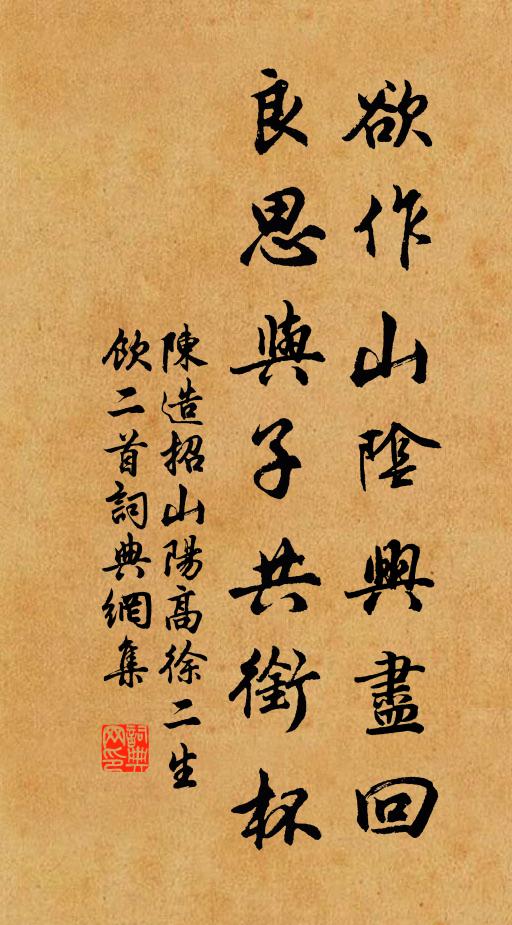 欲作山陰興盡回
良思與子共銜杯
陳造招山陽高徐二生
飲二首詞典網集
詞典
网印